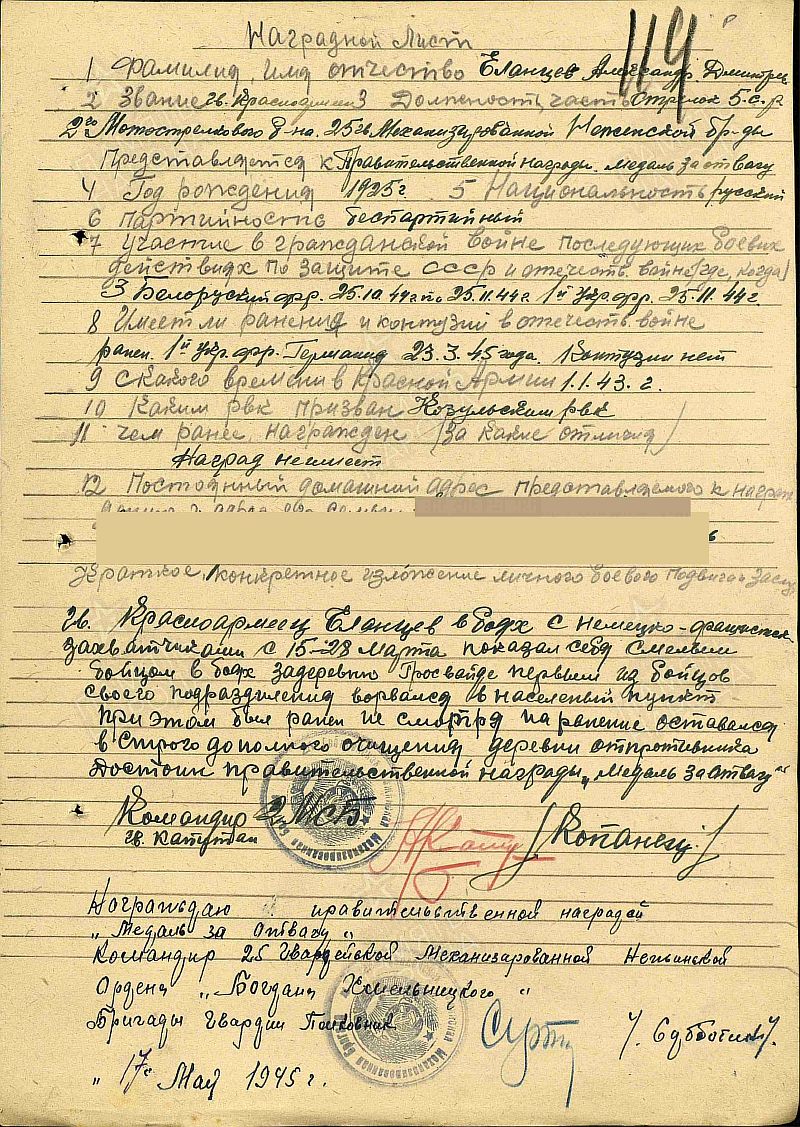 119
Наградной Лист
1 Фамилия, имя отчество Еланцев Александр Дмитрев
2 Звание гв. Красноармеец 3 Должность, часть Стрелок 5.с.р
2го Мотострелкового б-на. 25гв Механизированной Неженской бр-ды
Представляется к Правительственной награды. Медаль за отвагу
4 Год рождения 1925г 5 Национальность русский
6 Партийность беспартийный
7 Участие в гражданской войне последующих боевих
действиях по защите СССР и отечеств. войне (где, когда)
3 Белоруский фр. 25.10 44г по 25.11.44г. 1й Укр. фр. 25.11.44г.
8 Имеет ли ранения и контузий в отечеств войне
ранен. 1й Укр. фр. Германия 23.3.45 года. Контузии нет
9 С какого времени в Красной Армии 1.1.43.г.
10 Каким рвк призван Козульским рвк
11 чем ранее, награжден (За какие отличия)
Наград неимеет
12 Постоянный домашний адрес представляемого к награж
Краткое, конкретное изложение личного боевого подвига и заслуг
гв. Красноармеец Еланцев в боях с немецко-фашистск
захватчиками с 15-28 марта показал себя смелым
бойцом в боях задеревню Просвайде первым из бойцов
своего подразделения ворвался в населеный пункт
при этом был ранен не смотря на ранение оставался
в строю до полного очищения деревни от противника
Достоин правительственной награды „Медаль за отвагу"
Командир 2 МСБ
гв. Капитан /Копанец/
Награждаю правительственной наградой
„Медаль за Отвагу"
Командир 25 Гвардейской Механизированной Нежинской
Ордена „Богдана Хмельницкого"
Бригады Гвардии Полковник
„17" Май 1945 г.